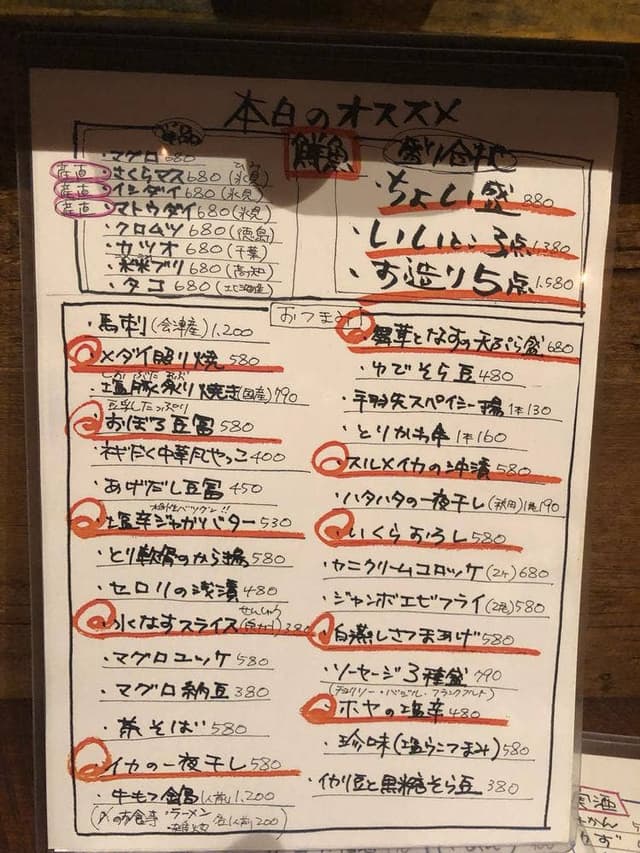 本日のオススメ
単品
・マグロ 680
産直 ・さくらマス 680 (氷見)
産直 ・イシダイ 680 (氷見)
産直 ・マトウダイ 680 (氷見)
・クロムツ 680 (徳島)
・カツオ 680 (千葉)
ブリ 680 (高知)
・タコ 680 (北海道産)
鮮魚
盛り合わせ
・ちょい盛 880
・いいとこ3点 1.380
・お造り5点 1.580
おつまみ
・馬刺 (会津産) 1.200
・メダイ照り焼 580
・塩豚炙り焼き (国産) 790
豆乳たっぷり
・おぼろ豆冨 580
・ネギだく中華風やっこ 400
・あげだし豆冨 450
相性バツグン!!
・塩辛ジャガバター 530
・とり軟骨のから揚 580
・セロリの浅漬 480
せんしゅう
・水なすスライス 380
・マグロユッケ 580
・マグロ納豆 380
・茶そば 580
・イカの一夜干し 580
・牛もつ鍋 (1人前) 1.200
(〆のお食事 ・ラーメン
・雑炊 各1人前200)
・舞茸となすの天ぷら盛 680
・ゆでそら豆 480
・手羽先スペイシー揚 1本130
・とりかわ串 1本160
・スルメイカの沖漬 580
・ハタハタの一夜干し (秋田) 190
・いくらおろし 580
・カニクリームコロッケ (2ヶ) 680
・ジャンボエビフライ (2尾) 580
・白蒸しさつまあげ 580
・ソーセージ3種盛 790
(チョリソー・バジル・フランクフルト)
・ホヤの塩辛 480
・珍味 (塩ウニつまみ) 580
・イカリ豆と黒糖そら豆 380